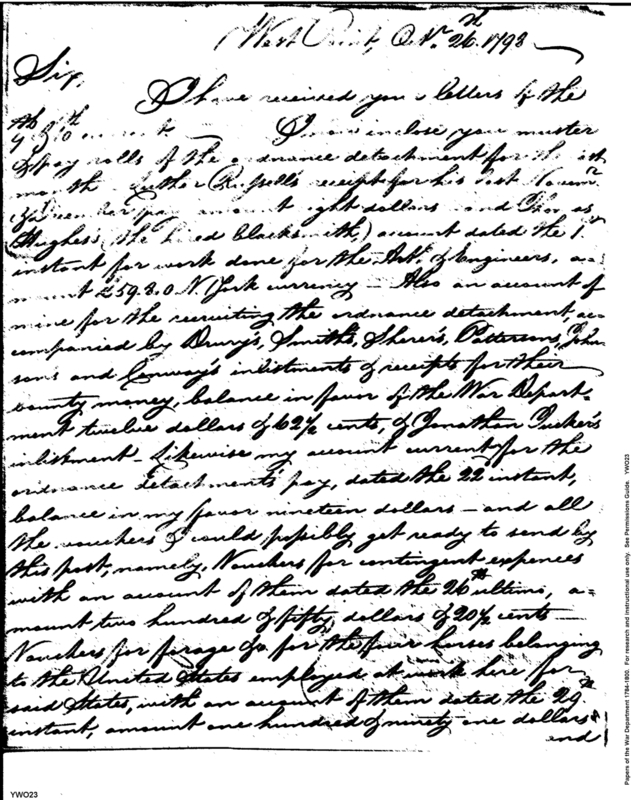 West Point, Oct.r 26.th 1793
Sir,
I have received your letters of the
I now inclose you muster
& pay rolls of the ordnance detachment for the last
month Luther Russell's receipt for his last Novem.r
& December pay amount eight dollars and Thomas
Hughes's (the hired blacksmith,) account dated the 1.st
instant for work done for the Art.y & Engineers, a=
mount £59.3.0 N. York currency — Also an account of
mine for the recruiting the ordnance detachment, ac=
companied by Drury's, Smith's, Sherer's, Patterson's, John=
son's and Conway's inlistments & receipts for their
bounty money, balance in favor of the War Depart=
ment twelve dollars & 62½ cents, & Jonathan Tucker's
inlistment — Likewise my account current for the
ordnance detachments pay, dated the 22.d instant,
balance in my favor nineteen dollars — and all
the vouchers I could possibly get ready to send by
this post, namely, Vouchers for contingent expences
with an account of them dated the 26.th ultimo, a=
mount two hundred & fifty dollars & 20½ cents —
Vouchers for forage &c for the four horses belonging
to the United States employed at work here for
said States, with an account of them dated the 29.th
instant, amount one hundred & ninety one dollars
and
Papers of the War Department 1784-1800. For research and instructional use only. See Permissions Guide. YWO23
YWO23